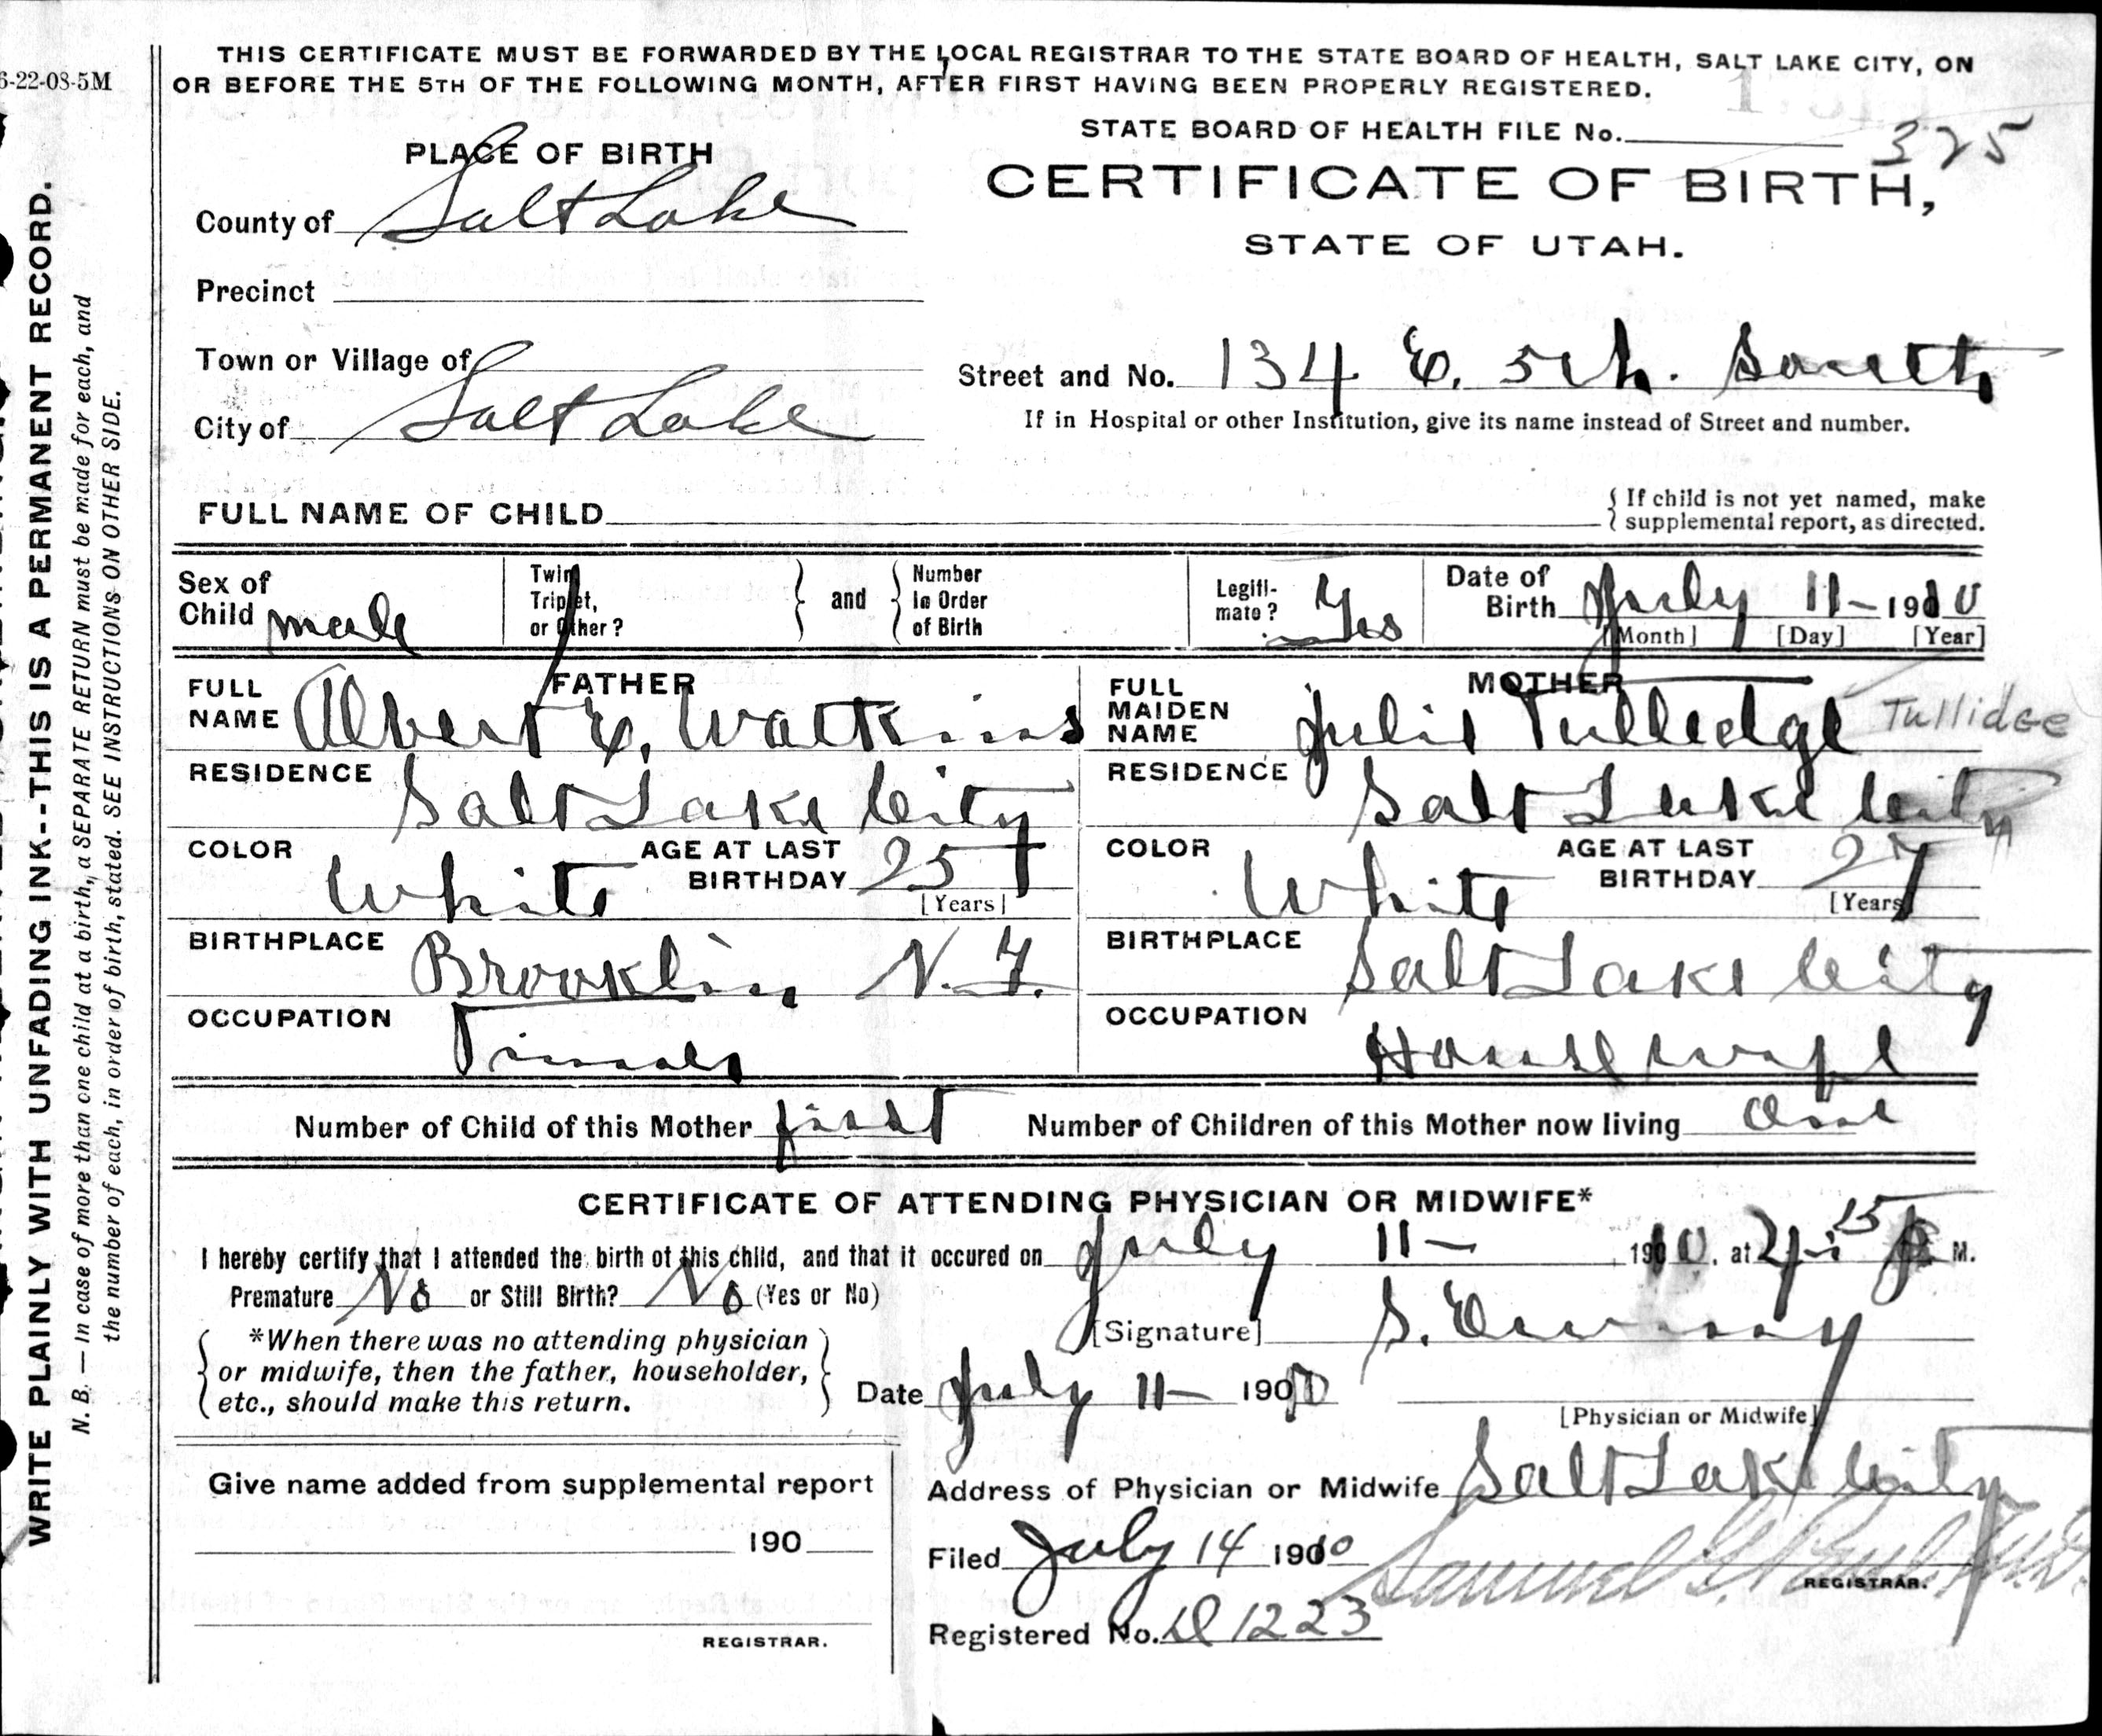 6-22-08-5M
THIS CERTIFICATE MUST BE FORWARDED BY THE LOCAL REGISTRAR TO THE STATE BOARD OF HEALTH, SALT LAKE CITY, ON
OR BEFORE THE 5TH OF THE FOLLOWING MONTH, AFTER FIRST HAVING BEEN PROPERLY REGISTERED.
STATE BOARD OF HEALTH FILE No. 325
PLACE OF BIRTH
CERTIFICATE OF BIRTH,
STATE OF UTAH.
County of Salt Lake
Precinct
Town or Village of
City of Salt Lake
Street and No. 134 E. 5th. South
If in Hospital or other Institution, give its name instead of Street and number.
FULL NAME OF CHILD
{ If child is not yet named, make
supplemental report, as directed.
Sex of Child male
Twin, Triplet, or Other?
and
Number in Order of Birth
Legitimate? Yes
Date of Birth July 11- 1910
[Month] [Day] [Year]
FATHER
FULL NAME Albert E. Watkins
RESIDENCE Salt Lake City
COLOR White
AGE AT LAST BIRTHDAY 25
[Years]
BIRTHPLACE Brooklin N.Y.
OCCUPATION
MOTHER
FULL MAIDEN NAME Julia Tulledge Tullidge
RESIDENCE Salt Lake City
COLOR White
AGE AT LAST BIRTHDAY 27
[Years]
BIRTHPLACE Salt Lake City
OCCUPATION Housewife
Number of Child of this Mother first
Number of Children of this Mother now living One
CERTIFICATE OF ATTENDING PHYSICIAN OR MIDWIFE*
I hereby certify that I attended the birth of this child, and that it occured on July 11- 1910, at 15 P M.
Premature No or Still Birth? No (Yes or No)
*When there was no attending physician
or midwife, then the father, householder,
etc., should make this return.
[Signature] S.
Date July 11- 1910
[Physician or Midwife]
Address of Physician or Midwife Salt Lake City
Give name added from supplemental report
190
REGISTRAR.
Filed July 14 1910
Samuel G. Paul M.D.
REGISTRAR.
Registered No. 1223
WRITE PLAINLY WITH UNFADING INK--THIS IS A PERMANENT RECORD.
N. B. — In case of more than one child at a birth, a SEPARATE RETURN must be made for each, and
the number of each, in order of birth, stated. SEE INSTRUCTIONS ON OTHER SIDE.